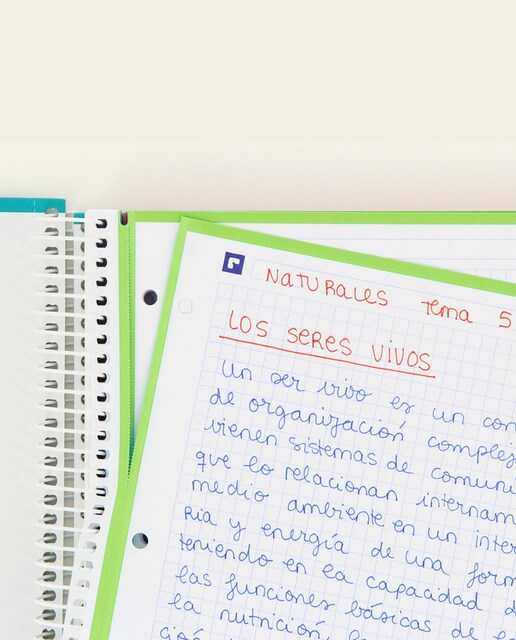 NATURALES Tema 5
LOS SERES VIVOS
Un ser vivo es un con
de organización complej
vienen sistemas de comuni
que lo relacionan internam
medio ambiente en un inter
ria y energía de una form
teniendo en la capacidad d
las funciones básicas de l
la nutrición, l
ció